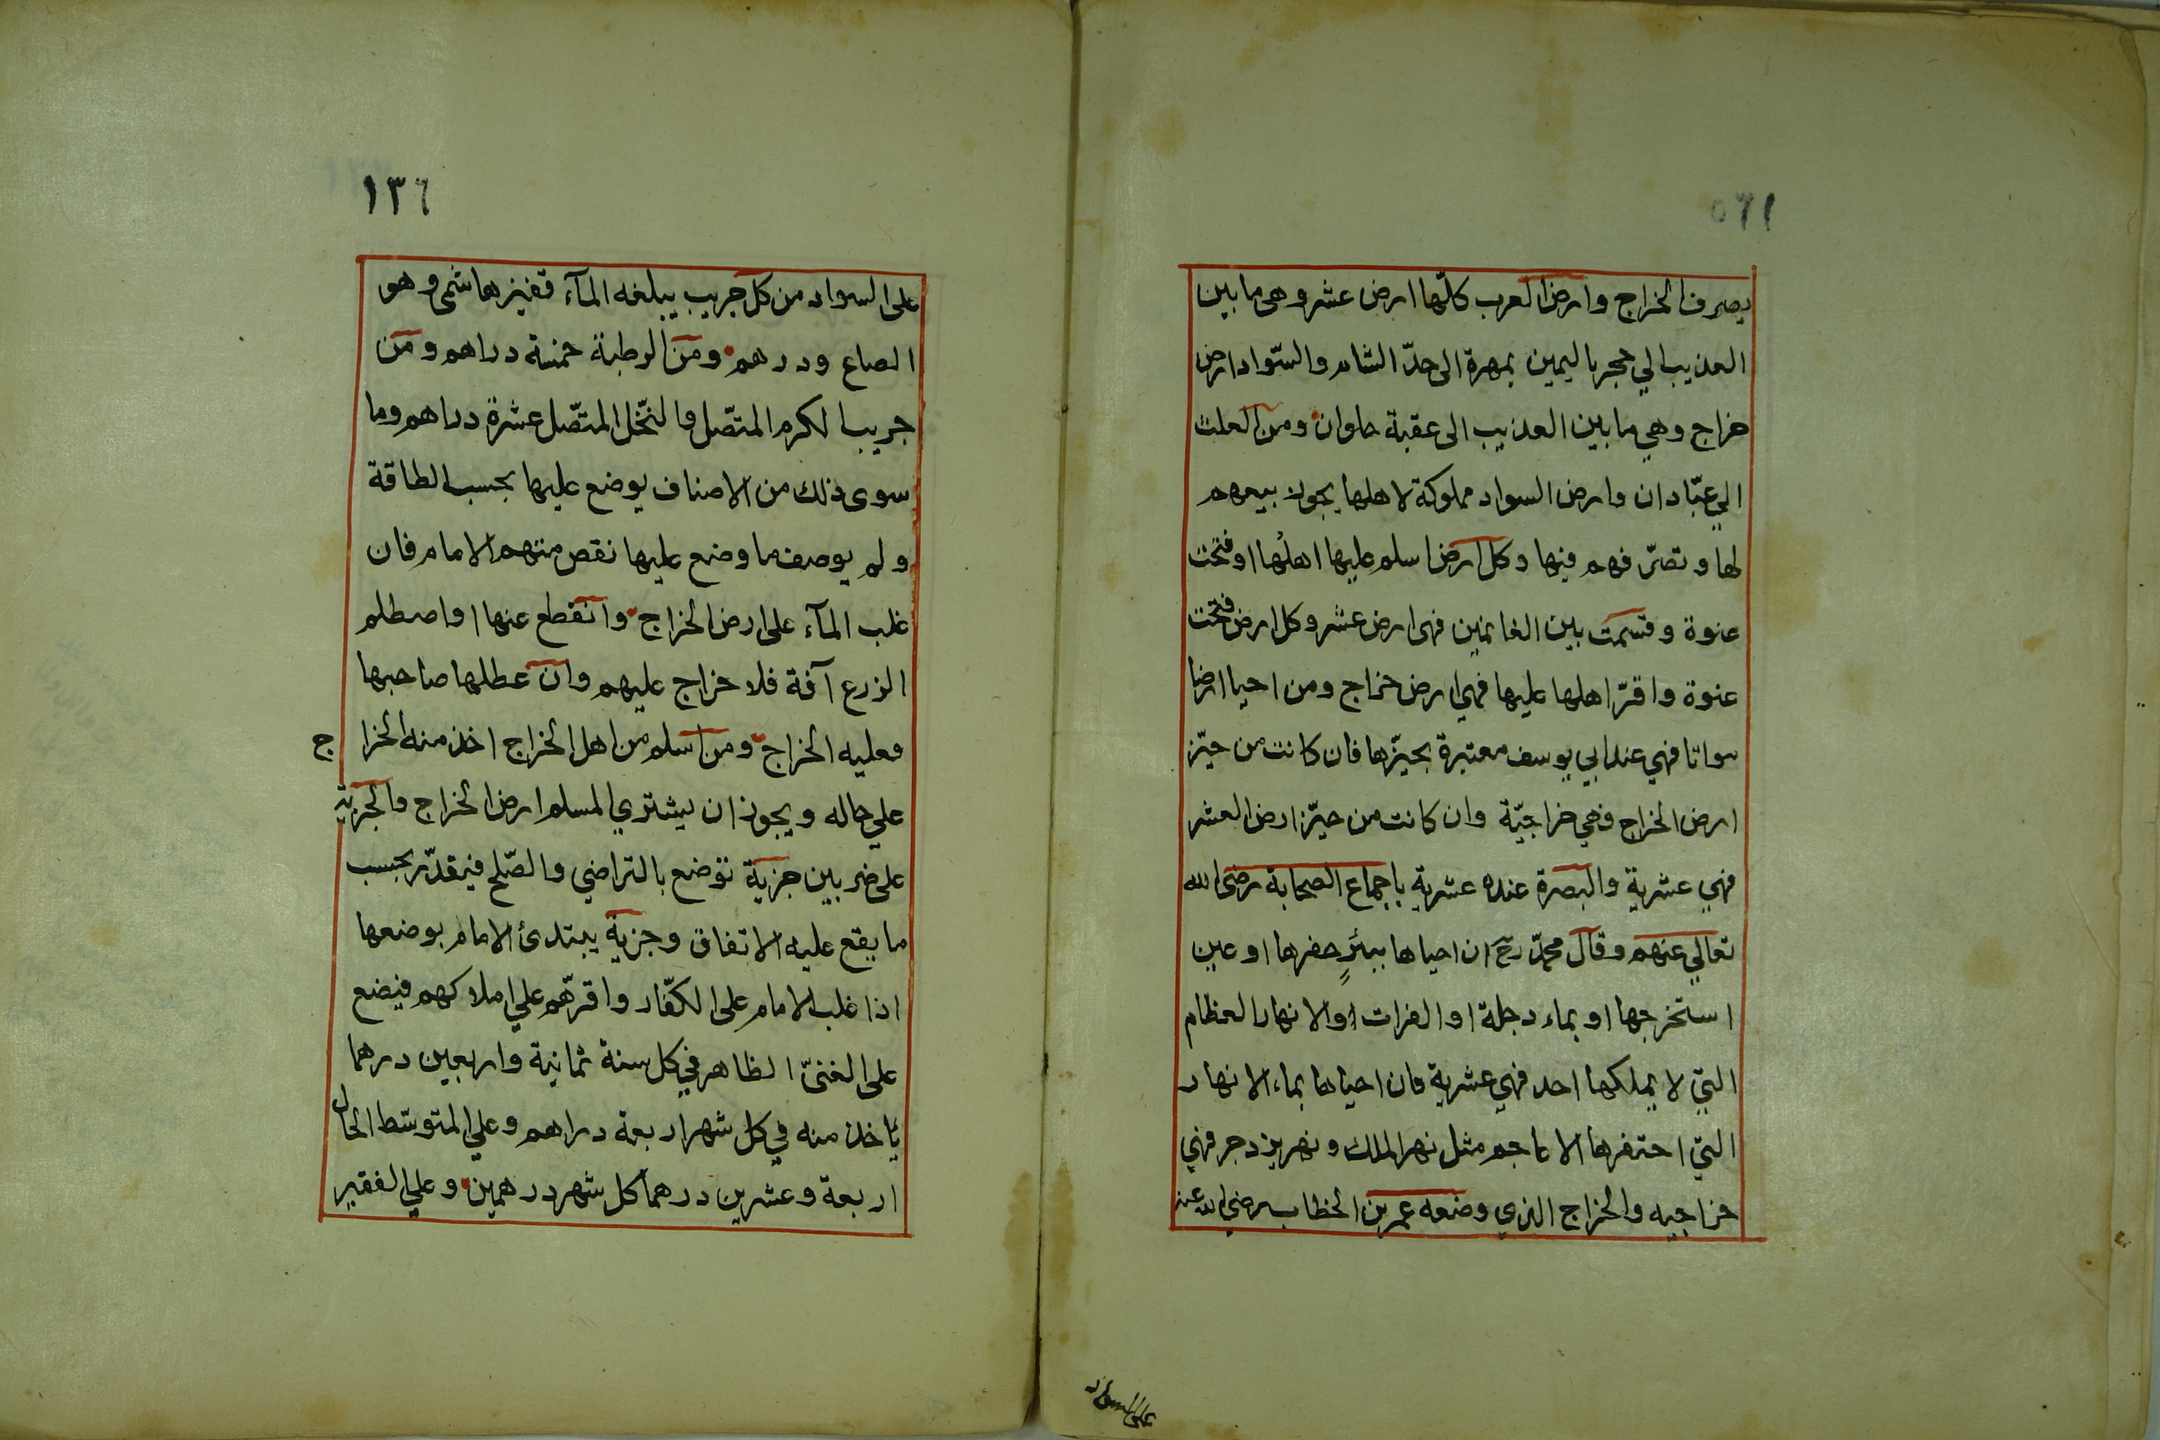 يصرف الخراج وارض العرب كلّها ارض عشر وهى ما بين
العذيب الي حجر باليمين بمهرة الى حدّ الشام والسّواد ارض
خراج وهي ما بين العذيب الى عقبة حلوان ومن العلت
الي عبّادان وارض السواد مملوكة لاهلها يجوز بيعهم
لها وتصرّفهم فيها وكل ارض اسلم عليها اهلُها او فتحت
عنوة وقسمت بين الغانمين فهى ارض عشر وكل ارض فتحت
عنوة واقرّ اهلها عليها فهي ارض خراج ومن احيا ارضا
مواتا فهي عند ابي يوسف معتبرة بحيّزها فان كانت من حيّز
ارض الخراج فهي خراجيّة وان كانت من حيّز ارض العشر
فهي عشرية والبصرة عنده عشرية باجماع الصحابة رضى الله
تعالي عنهم وقال محمدّ رح ان احياها ببئرٍ حفرها او عين
استخرجها او بماء دجلة او الفرات او الانهار العظام
التي لا يملكها احد فهي عشرية فان احياها بماء الانهار
التي احتفرها الاعاجم مثل نهر الملك ونهر يزدجر فهي
خراجيه والخراج الذي وضعه عمر بن الخطاب رضي الله عنه
على السواد
١٣٦
على السواد من كل جريب يبلغه المآء قفيز هاشمى وهو
الصاع ودرهم ومن الرطبة خمسة دراهم ومن
جريب الكرم المتصّل والنخّل المتصّل عشرة دراهم وما
سوى ذلك من الاصناف يوضع عليها بحسب الطاقة
ولم يوصف ما وضع عليها نقص منتهم الامام فان
غلب المآء على ارض الخراج وانقطع عنها او اصطلم
الزرع آفة فلا خراج عليهم وان عطلها صاحبها
فعليه الخراج ومن اسلم من اهل الخراج اخذ منه الخراج
علي حاله ويجوز ان يشتري المسلم ارض الخراج والجزية
على ضربين جزية توضع بالتراضي والصّلح فيقدّر بحسب
ما يقع عليه الاتفاق وجزية يبتدئ الامام بوضعها
اذا غلب الامام على الكفّار واقرّهم علي املاكهم فيضع
على الغنىّ الظاهر في كل سنة ثمانية واربعين درهما
ياخذ منه في كل شهر اربعة دراهم وعلي المتوسّط الحال
اربعة وعشرين درهما كل شهر درهمين وعلي الفقير